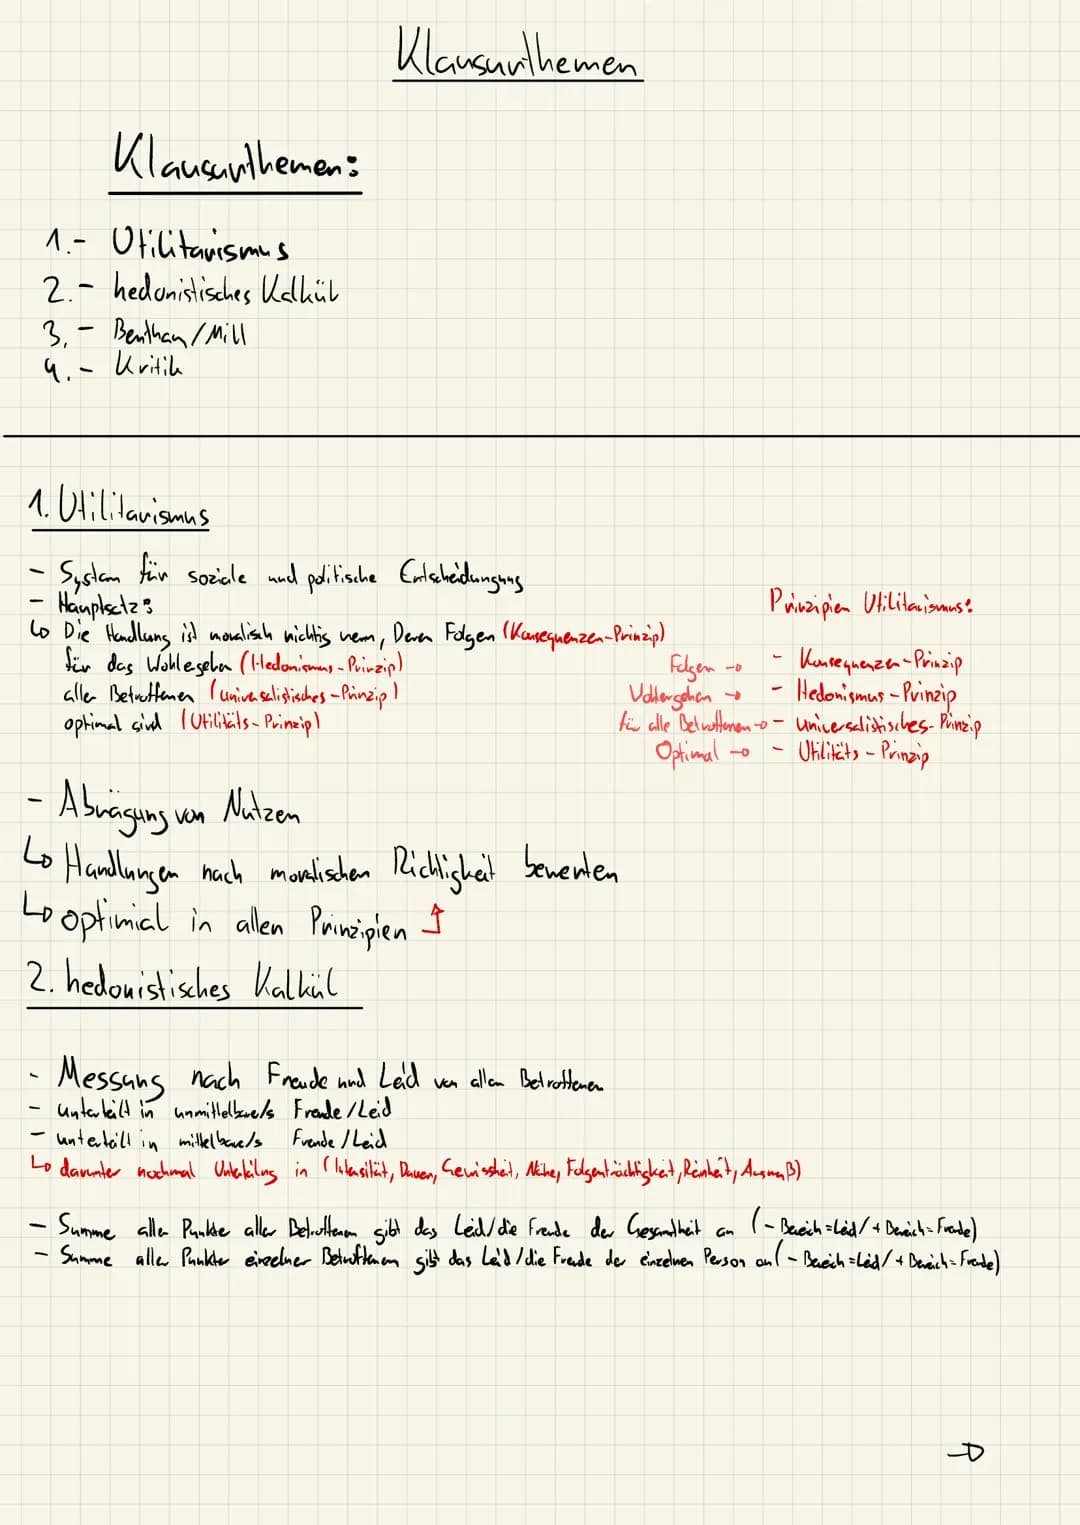 Klausurthemen
Klausurthemen:
1.- Utilitarismus
2.- hedonistisches Kalkül
3.- Benthan/Mill
4.- Kritik
1. Utilitarismus
- System für soziale und politische Entscheidungung
- Hauptsatz:
↳ Die Handlung ist moralisch richtig wenn, Deren Folgen (Konsequenzen-Prinzip)
für das Wohlergehen (Hedonismus-Prinzip)
aller Betroffenen (universalistisches-Prinzip)
optimal sind (Utilitäts-Prinzip)
Prinzipien Utilitarismus:
Folgen → - Konsequenzen-Prinzip
Wohlergehen → - Hedonismus-Prinzip
für alle Betroffenen → - universalistisches-Prinzip
Optimal → - Utilitäts-Prinzip
- Abwägung von Nutzen
↳ Handlungen nach moralischen Richtigkeit bewerten
↳ optimial in allen Prinzipien ↑
2. hedonistisches Kalkül
- Messung nach Freude und Leid von allen Betroffenen
- unterteilt in unmittelbare/s Freude/Leid
- unterteilt in mittelbare/s Freude/Leid
↳ darunter nochmal Unteilung in (Intensität, Dauer, Gewissheit, Nähe, Folgenträchtigkeit, Reinheit, Ausmaß)
- Summe aller Punkte aller Betroffenen gibt das Leid/die Freude der Gesamtheit an (- Bereich=Leid/+ Bereich=Freude)
- Summe aller Punkte einzelner Betroffenen gibt das Leid/die Freude der einzelnen Person an (- Bereich=Leid/+ Bereich=Freude)
→